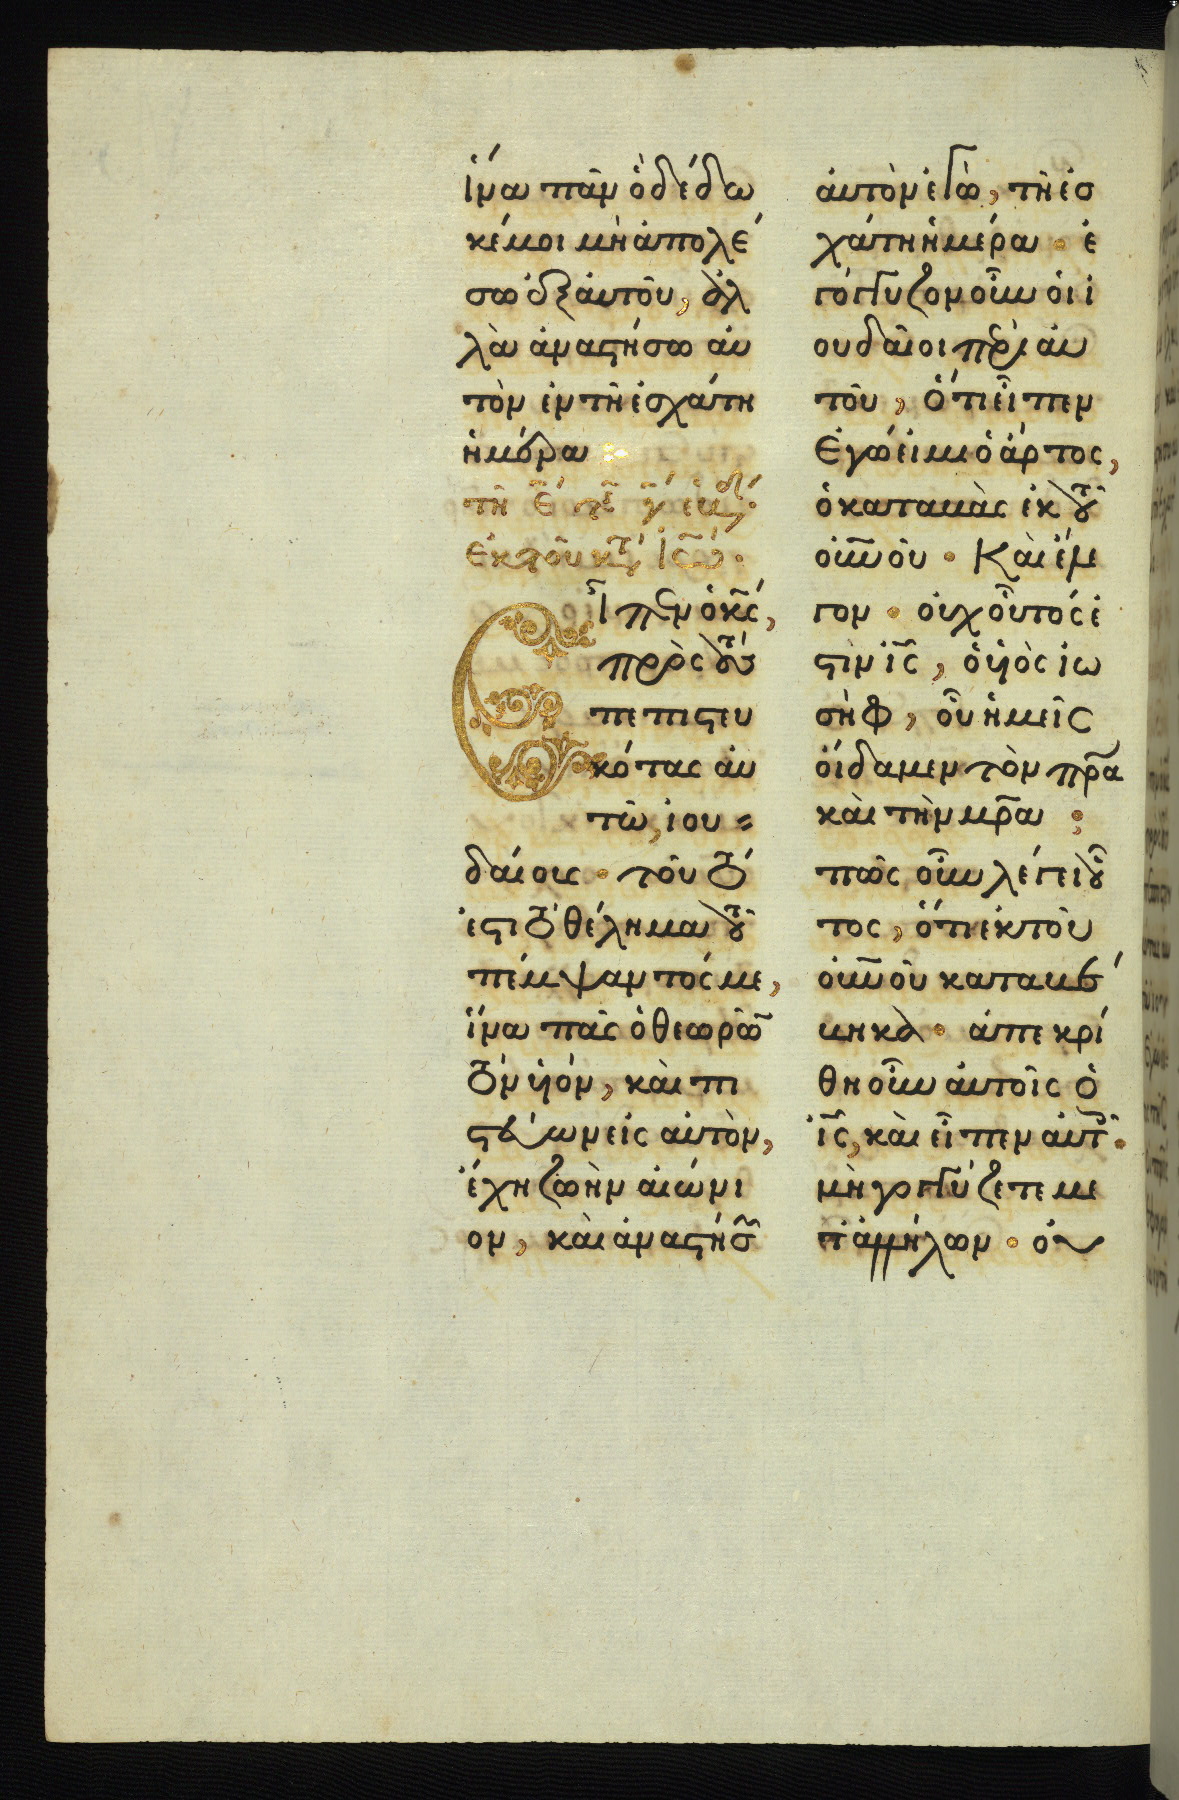 ἵνα πᾶν ὃ δέδω
κέ μοι μὴ ἀπολέ
σω ἐξ αὐτοῦ, ἀλ
λὰ ἀναστήσω αὐ
τὸν ἐν τῇ ἐσχάτῃ
ἡμέρα
Ἐκ τοῦ κτ Ἰω.
Εἶπεν ὁ κς,
πρὸς τοὺς
πεπιστευ
κότας αὐ
τῶ, ἰου
δαίοις · τοῦτό
ἐστι τὸ θέλημα τοῦ
πέμψαντός με,
ἵνα πᾶς ὁ θεωρῶν
τὸν ὑὸν, καὶ πι
στεύων εἰς αὐτὸν,
ἔχη ζωὴν αἰώνι
ον, καὶ ἀναστήσω
αὐτὸν ἐγὼ, τῆ ἐσ
χάτη ἡμέρα · ἐ
γόγγυζον οὖν οἱ ἰ
ουδαῖοι περὶ αὐ
τοῦ, ὅτι εἶπεν
Ἐγώ εἰμι ὁ ἄρτος,
ὁ καταβὰς ἐκ τοῦ
οὐνοῦ · Καὶ ἔλε
γον · οὐχ οὗτός ἐ
στιν ἰς, ὁ ὑὸς ἰω
σὴφ, οὗ ἡμεῖς
οἴδαμεν τὸν πρα
καὶ τὴν μρα ;
πῶς οὖν λέγει οὗ
τος, ὅτι ἐκ τοῦ
οὐνοῦ καταβέ
βηκα · ἀπεκρί
θη οὖν αὐτοῖς ὁ
ἰς, καὶ εἶπεν αὐτοῖς.
μὴ γογγύζετε με
τ ἀλλήλων · οὐ